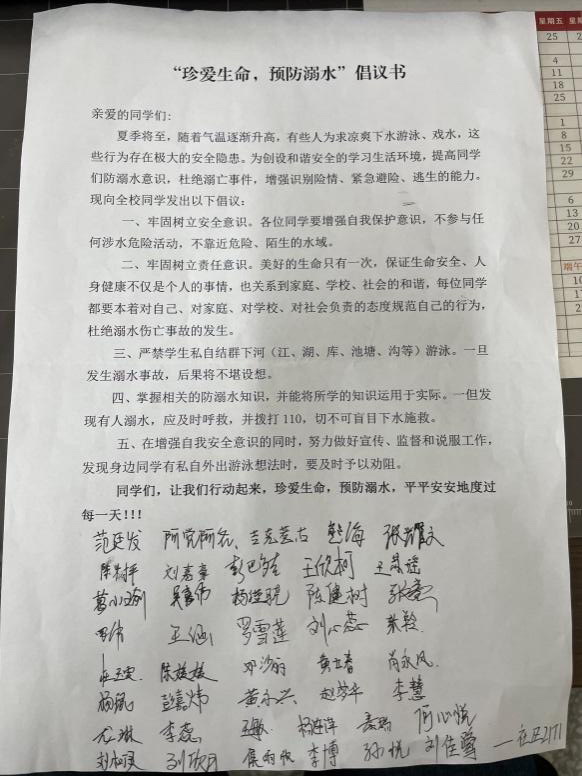 星期五 星期
25 2
4
11
18
25
1
8 8
15 1
22 2
29
6
13 1
20 2
27
端午
10 1
17
“珍爱生命，预防溺水”倡议书
亲爱的同学们：
夏季将至，随着气温逐渐升高，有些人为求凉爽下水游泳、戏水，这
些行为存在极大的安全隐患。为创设和谐安全的学习生活环境，提高同学
们防溺水意识，杜绝溺亡事件，增强识别险情、紧急避险、逃生的能力。
现向全校同学发出以下倡议：
一、牢固树立安全意识。各位同学要增强自我保护意识，不参与任
何涉水危险活动，不靠近危险、陌生的水域。
二、牢固树立责任意识。美好的生命只有一次，保证生命安全、人
身健康不仅是个人的事情，也关系到家庭、学校、社会的和谐，每位同学
都要本着对自己、对家庭、对学校、对社会负责的态度规范自己的行为，
杜绝溺水伤亡事故的发生。
三、严禁学生私自结群下河（江、湖、库、池塘、沟等）游泳。一旦
发生溺水事故，后果将不堪设想。
四、掌握相关的防溺水知识，并能将所学的知识运用于实际。一但发
现有人溺水，应及时呼救，并拨打 110，切不可盲目下水施救。
五、在增强自我安全意识的同时，努力做好宣传、监督和说服工作，
发现身边同学有私自外出游泳想法时，要及时予以劝阻。
同学们，让我们行动起来，珍爱生命，预防溺水，平平安安地度过
每一天!!!
范廷发
刘嘉豪 王欣柯
陈健树
王涵 罗雪莲 刘心蕊
陈媛媛 肖永凤
彭嘉炜 黄永兴 赵梦华 李慧
李蕊 何心悦
刘欣月 李博 孙悦 刘佳莹